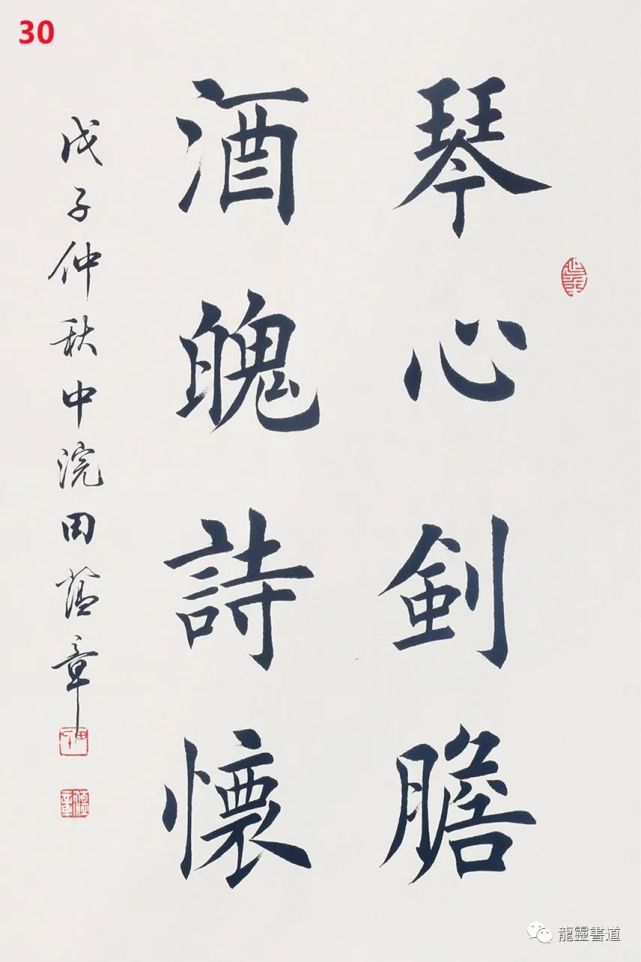 30
琴心劍膽
酒魄詩懷
戊子仲秋中浣田蘊章
龍靈書道